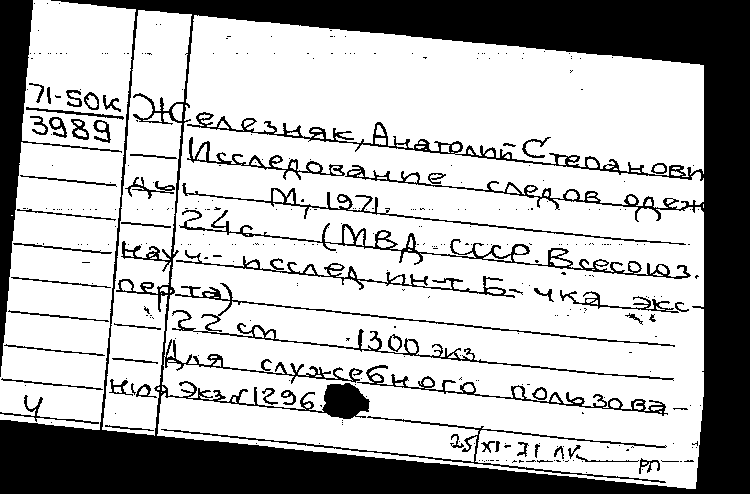 71-50К
3989
Железняк, Анатолий Степанови
Исследование следов одеж
ды. М., 1971.
24с. (МВД СССР. Всесоюз.
науч.- исслед ин-т. Б-чка экс-
перта).
22 см 1300 экз.
Для служебного пользова-
ния Экз№1296.
Ч
25/XI-71 ЛК
РП